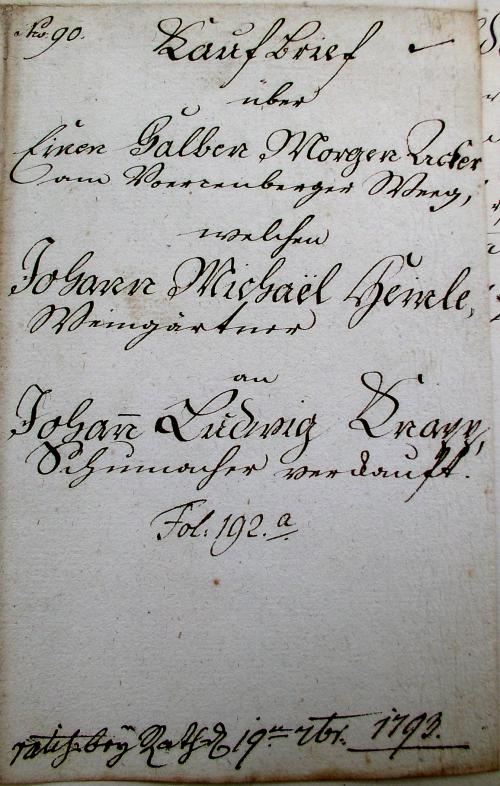 No. 90.
Kauf Brief
über
Einen Halben Morgen Acker
am Weeg,
welchen
Johann Michaël Heinle,
Weingärtner
an
Johan̄ Ludwig Knapp,
Schumacher verkauft.
Fol: 192. a
bey Rath d. 19ten 7br. 1793.